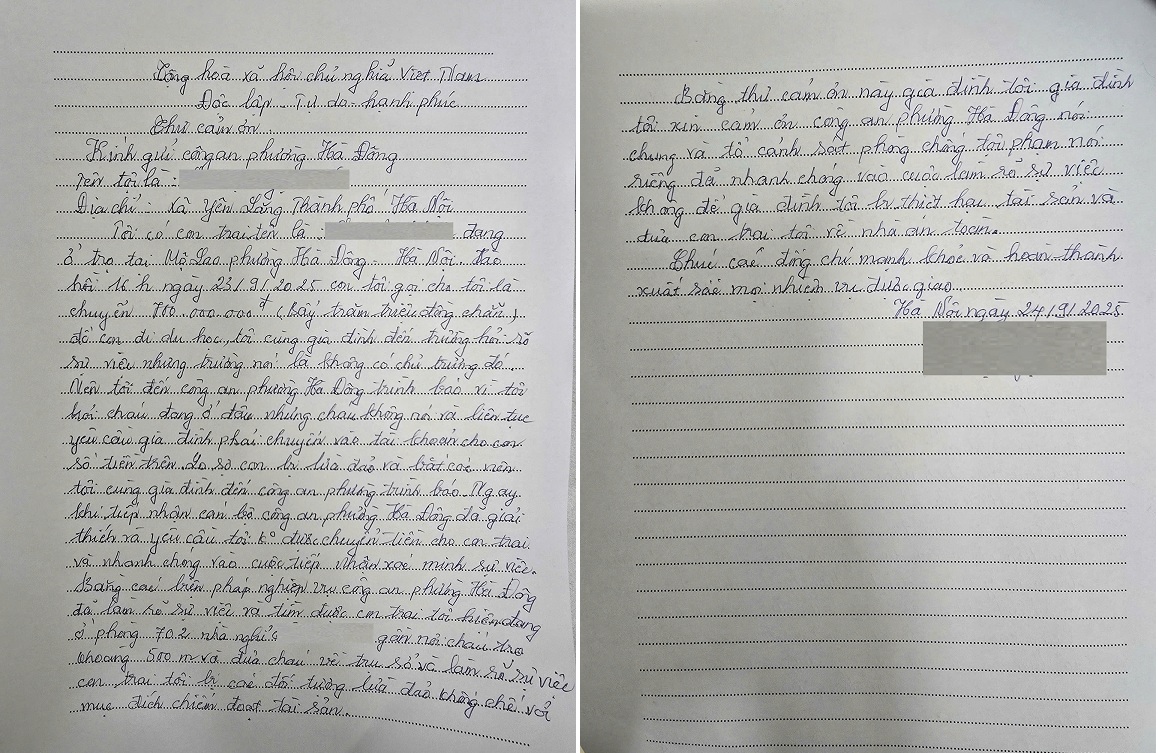 Cộng hoà xã hội chủ nghĩa Việt Nam
Độc lập - Tự do - hạnh phúc
Thư cảm ơn
Kính gửi công an phường Hà Đông
Tên tôi là :
Địa chỉ : xã Yên Lãng Thành phố Hà Nội
Tôi có con trai tên là : đang
ở trọ tại Mộ Lao phường Hà Đông - Hà Nội
hồi 16 h ngày 23/9/2025 con tôi gọi cho tôi là
chuyển 700.000.000đ (Bảy trăm triệu đồng chẵn)
để con đi du học, tôi cùng gia đình đến trường hỏi rõ
sự việc nhưng trường nói là không có chủ trương đó.
Nên tôi đến công an phường Hà Đông trình báo vì tôi
hỏi cháu đang ở đâu nhưng cháu không nói và liên tục
yêu cầu gia đình phải chuyển vào tài khoản cho con
số tiền trên. Lo sợ con bị lừa đảo và bắt cóc nên
tôi cùng gia đình đến công an phường trình báo. Ngay
khi tiếp nhận cán bộ công an phường Hà Đông đã giải
thích và yêu cầu tôi ko được chuyển tiền cho con trai
và nhanh chóng vào cuộc tiếp nhận xác minh sự việc.
Bằng các biện pháp nghiệp vụ công an phường Hà Đông
đã làm rõ sự việc và tìm được con trai tôi hiện đang
ở phòng 702 nhà nghỉ gần nơi cháu trọ
khoảng 500 m và đưa cháu về trụ sở và làm rõ sự việc
con trai tôi bị các đối tượng lừa đảo khống chế với
mục đích chiếm đoạt tài sản.
Bằng thư cảm ơn này gia đình tôi gia đình
tôi xin cảm ơn công an phường Hà Đông nói
chung và tổ cảnh sát phòng chống tội phạm nói
riêng đã nhanh chóng vào cuộc làm rõ sự việc
không để gia đình tôi bị thiệt hại tài sản và
đưa con trai tôi về nhà an toàn.
Chúc các đồng chí mạnh khoẻ và hoàn thành
xuất sắc mọi nhiệm vụ được giao
Hà Nội ngày 24/9/2025